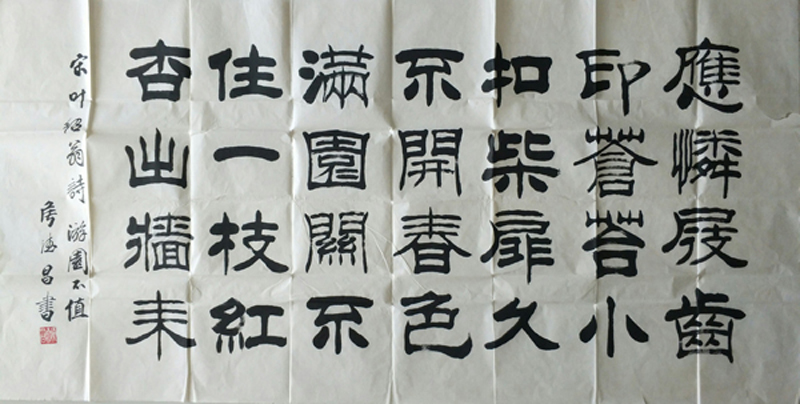 應憐屐齒
印蒼苔小
扣柴扉久
不開春色
滿園關不
住一枝紅
杏出牆来
宋叶绍翁詩 游園不值
昌書